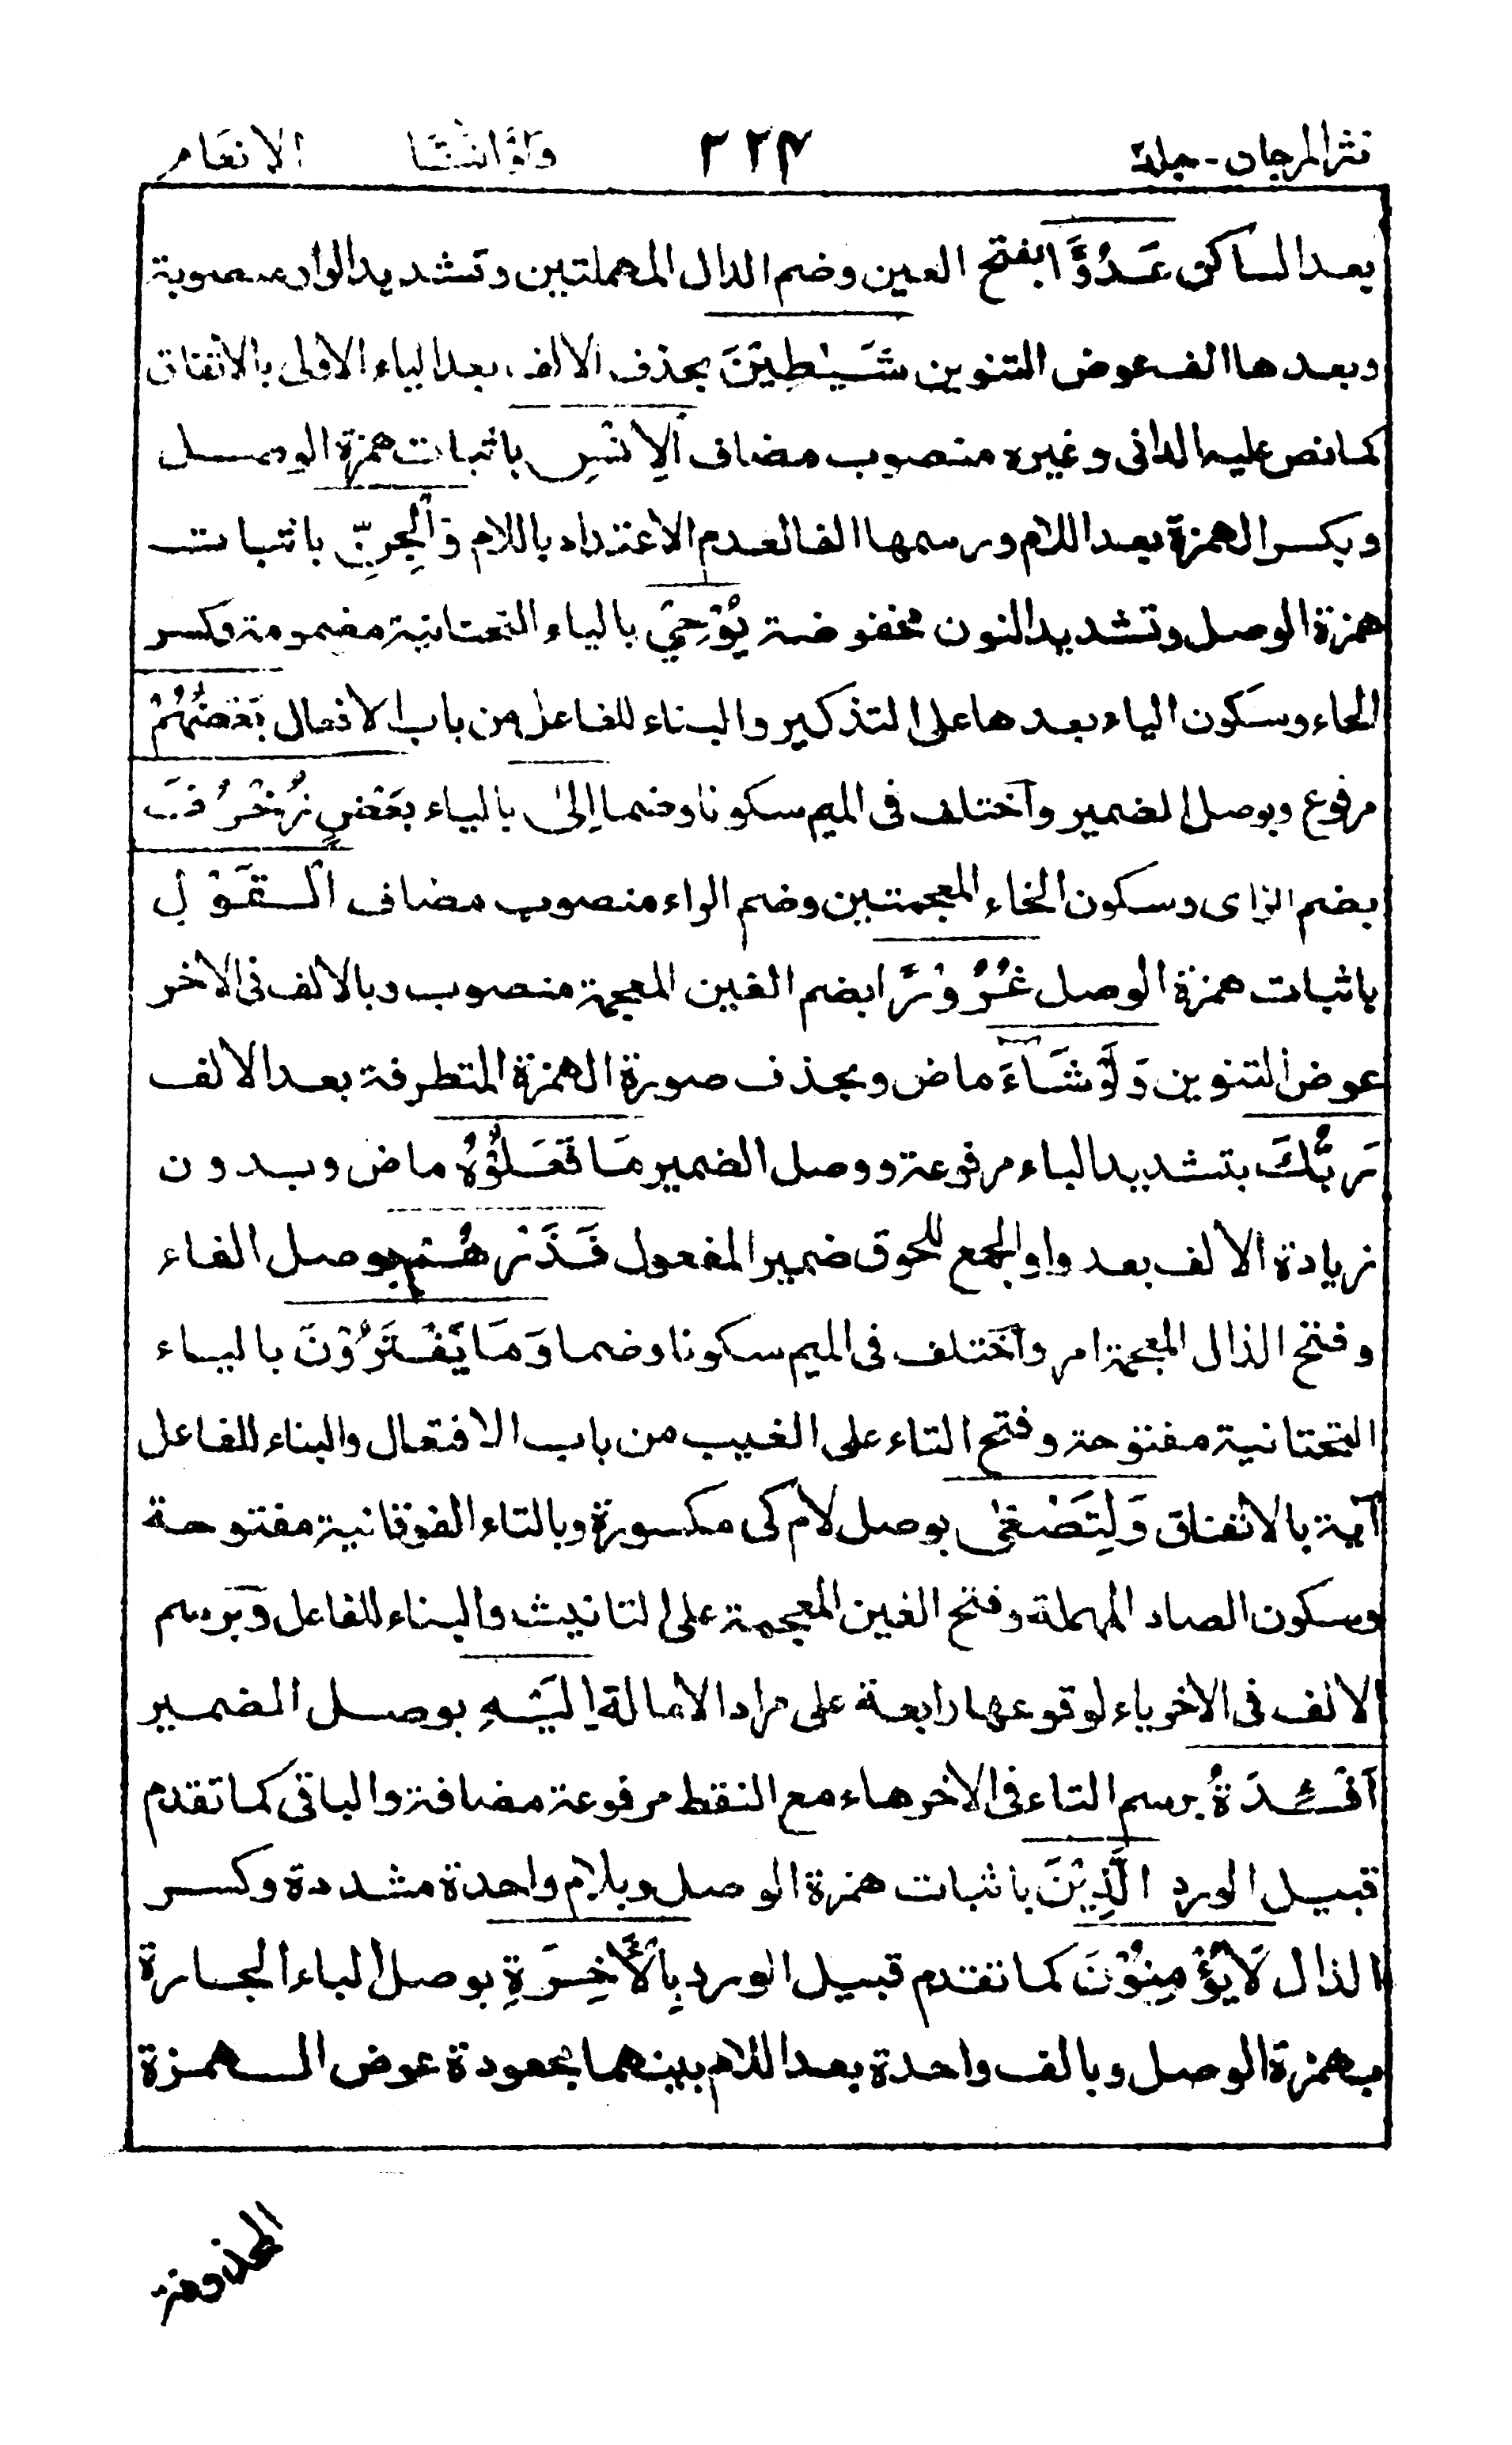 نثر المرجان - جلد ٣٢٤ ولو اننا الانعام
بعد الساكن عَدُوًّا بفتح العين وضم الدال المهملتين وتشديد الواو منصوبة
وبعدها الف عوض التنوين شَيٰطِيْنَ بحذف الالف بعد الياء الاولى بالاتفاق
كما نص عليه الدانى وغيره منصوب مضاف الْاِنْسِ باثبات همزة الوصل
وبكسر الهمزة بعد اللام ورسمها الفا لعدم الاعتداد باللام وَالْجِنِّ باثبات
همزة الوصل وتشديد النون مخفوضة يُوْحِيْ بالياء التحتانية مضمومة وكسر
الحاء وسكون الياء بعدها على التذكير والبناء للفاعل من باب الافعال بَعْضُهُمْ
مرفوع وبوصل الضمير واختلف فى الميم سكونا وضما اِلىٰ بالياء بَعْضٍ زُخْرُفَ
بضم الزاى وسكون الخاء المعجمتين وضم الراء منصوب مضاف الْقَوْلِ
باثبات همزة الوصل غُرُوْرًا بضم الغين المعجمة منصوب وبالالف فى الاخر
عوض التنوين وَلَوْ شَآءَ ماض وبحذف صورة الهمزة المتطرفة بعد الالف
رَبُّكَ بتشديد الباء مرفوعة ووصل الضمير مَا فَعَلُوْهُ ماض وبدون
زيادة الالف بعد واو الجمع للحوق ضمير المفعول فَذَرْهُمْ بوصل الفاء
وفتح الذال المعجمة امر واختلف فى الميم سكونا وضما وَمَا يَفْتَرُوْنَ بالياء
التحتانية مفتوحة وفتح التاء على الغيب من باب الافتعال والبناء للفاعل
آية بالاتفاق وَلِتَصْغىٰ بوصل لام كى مكسورة وبالتاء الفوقانية مفتوحة
وسكون الصاد المهملة وفتح الغين المعجمة على التانيث والبناء للفاعل وبرسم
الالف فى الاخر ياء لوقوعها رابعة على مراد الامالة اِلَيْهِ بوصل الضمير
اَفْئِدَةُ برسم التاء فى الاخر هاء مع النقط مرفوعة مضافة والباقى كما تقدم
قبيل الورد الَّذِيْنَ باثبات همزة الوصل وبلام واحدة مشددة وكسر
الذال لَا يُؤْمِنُوْنَ كما تقدم قبيل الورد بِالْاٰخِرَةِ بوصل الباء الجارة
بهمزة الوصل وبالف واحدة بعد اللام بينهما مجعودة عوض الهمزة
المحذوفة